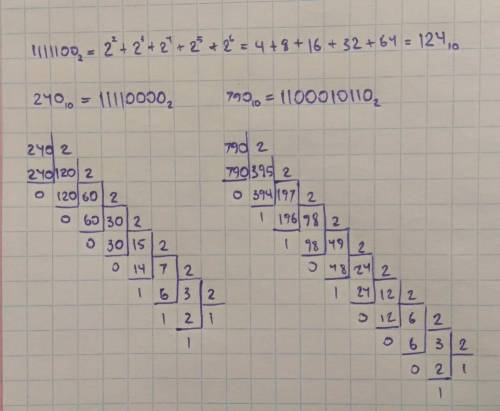 1111100₂ = 2² + 2³ + 2⁴ + 2⁵ + 2⁶ = 4 + 8 + 16 + 32 + 64 = 124₁₀
240₁₀ = 11110000₂
240 2
240 120 2
0 120 60 2
0 60 30 2
0 30 15 2
0 14 7 2
1 6 3 2
1 2 1
1
790₁₀ = 1100010110₂
790 2
790 395 2
0 394 197 2
1 196 98 2
1 98 49 2
0 48 24 2
1 24 12 2
0 12 6 2
0 6 3 2
0 2 1
1